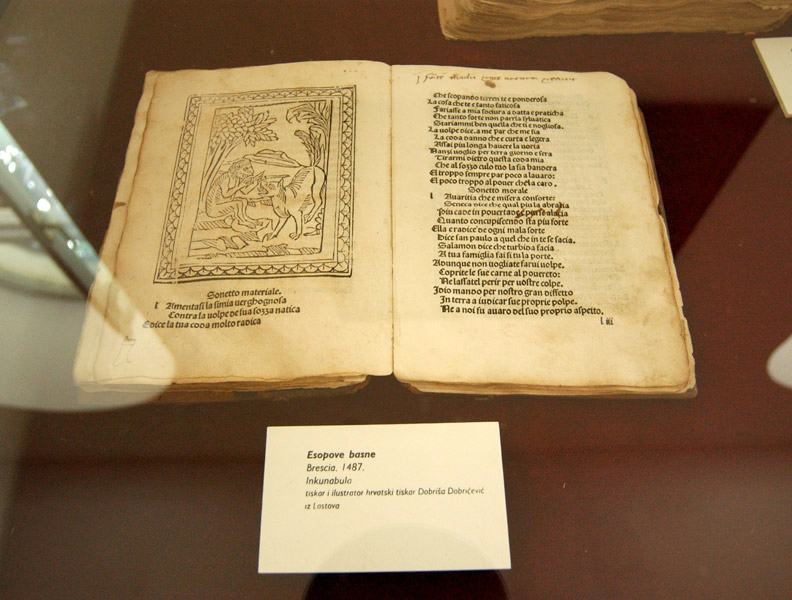 Sonetto materiale.
L Amentasi la simia verghognosa
Contra la volpe de sua sozza natica
E dice la tua coda molto radica
Che scopando terem te e ponderosa
La cosa che te e tanto faticosa
Fariasse a mia sociura adatta e praticha
Che tanto forte non parria sylvatica
Stariamni ben quella che ti e nogliosa.
La volpe dice. a me par che me sia
La coda danno che e curta e legera
Assai piu longa havere la voria
Nanzi voglio per terra giorno e sera
Tirarmi dietro questa coda mia
Che al sozzo culo tuo la sia bandera
El troppo sempre par poco a lavaro:
El poco troppo al pover che la caro.
Sonetto morale
L Avaritia che e misera consorte:
Seneca dice che qual piu la abratia
Piu cade in povertade e
Quanto concupiscendo sta piu forte
Ella e radice de ogni mala sorte
Dice san paulo a quel che in te se sacia.
Salamon dice che turbida facia
A tua famiglia fai si tu la porte.
Adunque non vogliate farui volpe.
Coprite le sue carne al povereto:
Ne lassatel perir per vostre colpe.
Idio mando per nostro gran diffetto
In terra a iudicar sue proprie polpe.
Ne a noi fu avaro del suo proprio aspetto.
Esopove basne
Brescia, 1487.
Inkunabula
tiskar i ilustrator hrvatski tiskar Dobriša Dobrićević
iz Lastova